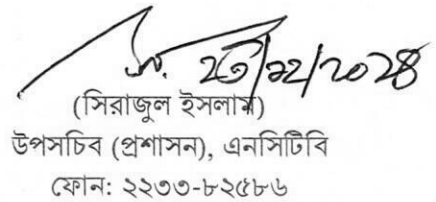 ২৩/১২/২০২৪
(সিরাজুল ইসলাম)
উপসচিব (প্রশাসন), এনসিটিবি
ফোন: ২২৩৩-৮২৫৮৬